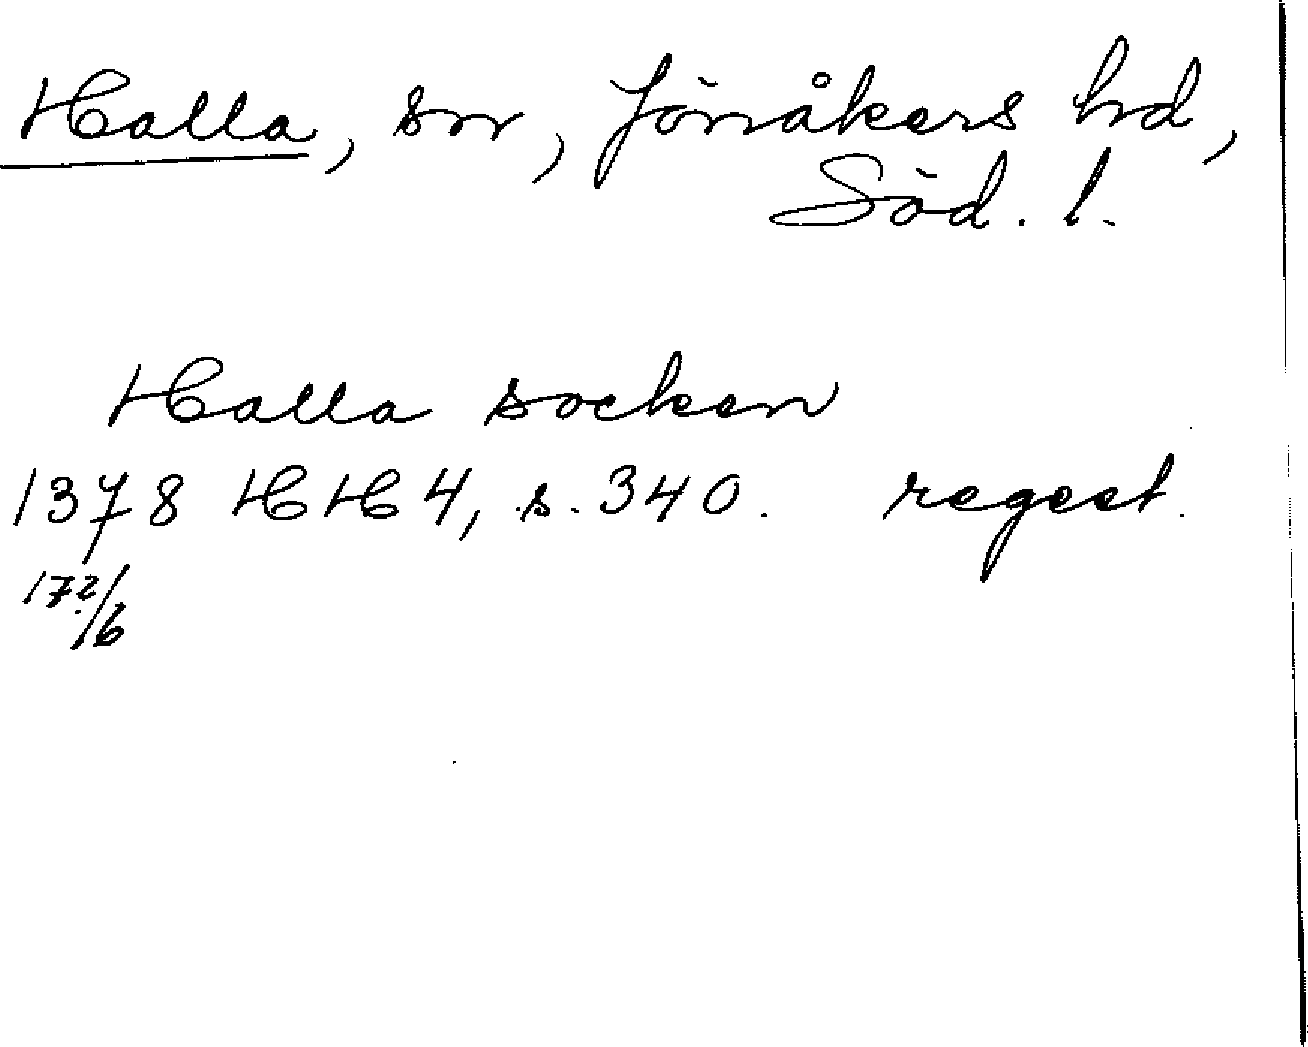 Halla, sn, Jönåkers hd,
Söd. l.
Halla socken
1378 HH 4, s. 340. regest.
17?/6